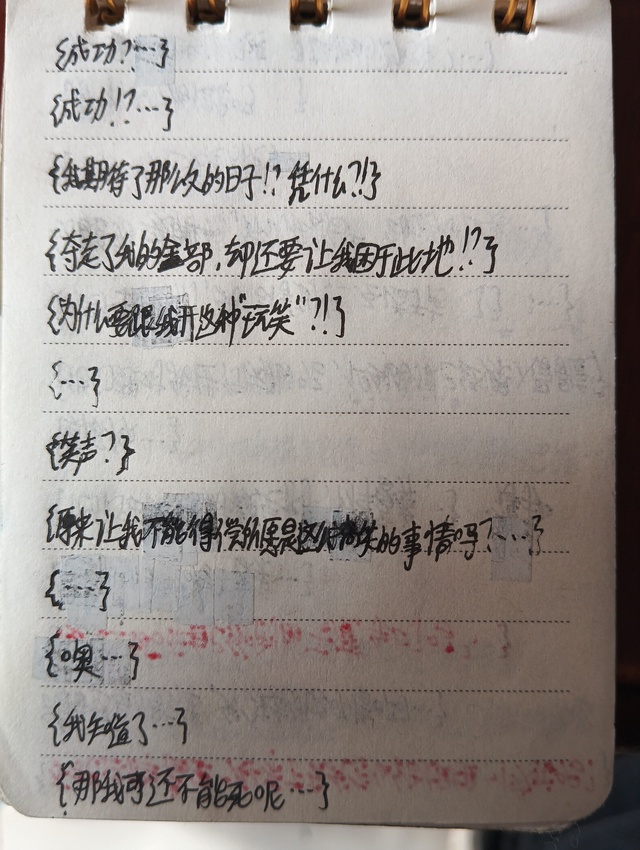 {成功?…}
{成功!?…}
{我期待了那么久的日子!? 凭什么?!}
{夺走了我的全部,却还要让我困于此地!?}
{为什么要跟我开这种“玩笑”?!}
{…}
{笑声?}
{原来让我不能得偿所愿是这么好笑的事情吗?…}
{…}
{噢…}
{我知道了…}
{那我可还不能死呢…}